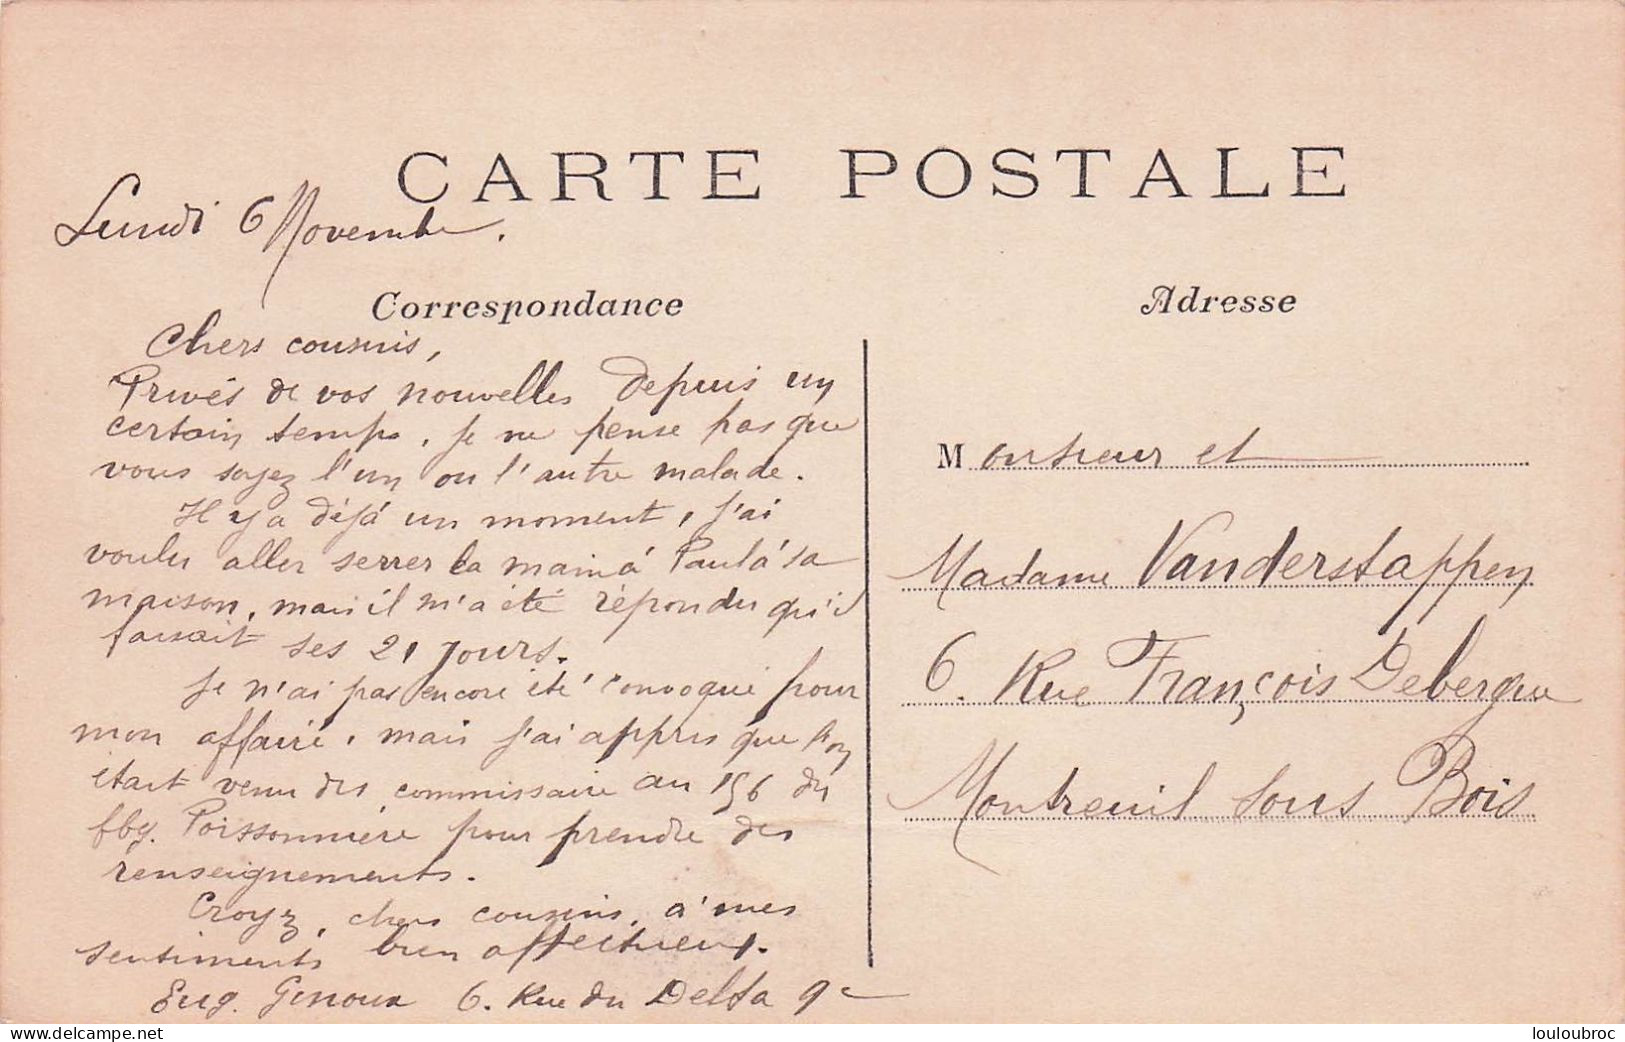 CARTE POSTALE
Lundi 6 Novembre.
Correspondance
Chers cousins,
Privés de vos nouvelles depuis un
certain temps, je ne pense pas que
vous soyez l'un ou l'autre malade.
Il y a déjà un moment, j'ai
voulu aller serrer la main à Paul à sa
maison, mais il m'a été répondu qu'il
faisait ses 21 jours.
Je n'ai pas encore été convoqué pour
mon affaire, mais j'ai appris que l'on
était venu du commissaire au 156 du
fbg. Poissonnière pour prendre des
renseignements.
Croyez, chers cousins, à mes
sentiments bien affectueux.
Eug. Genoux 6. Rue du Delta 9e
Adresse
Monsieur et
Madame Vanderstappen
6. Rue François Debergue
Montreuil sous Bois
delcampe.net
louloubroc